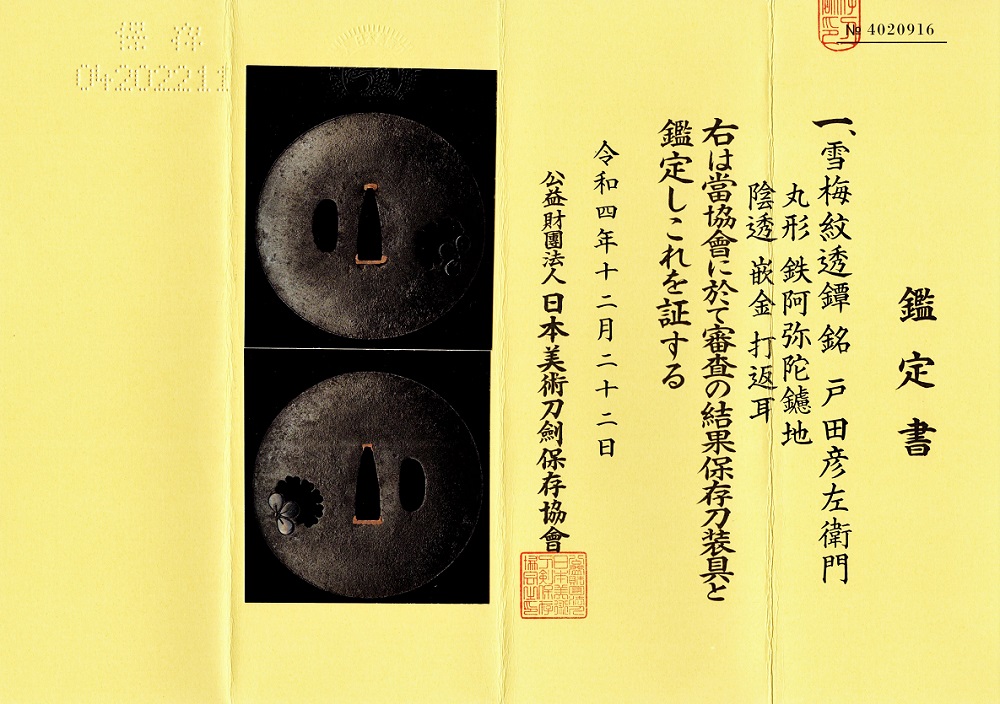 № 4020916
鑑定書
一、雪梅紋透鐔 銘 戸田彦左衛門
丸形 鉄阿弥陀鑢地
陰透 嵌金 打返耳
右は當協會に於て審査の結果保存刀装具と
鑑定しこれを証する
令和四年十二月二十二日
公益財團法人 日本美術刀劍保存協會
保存
04202211